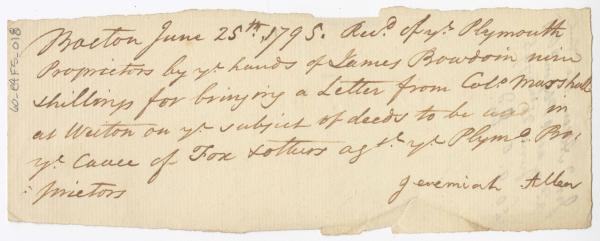 Boston June 25th. 1795. Recd. of ye. Plymouth
Proprietors by ye hands of James Bowdoin nine
shillings for bringing a Letter from Colo. Marshall
at Weston on ye subject of deeds to be in
ye. Cause of Fox & others agst. ye Plymo. Pro,
:prietors
Jeremiah Allen
60-EAFS-018